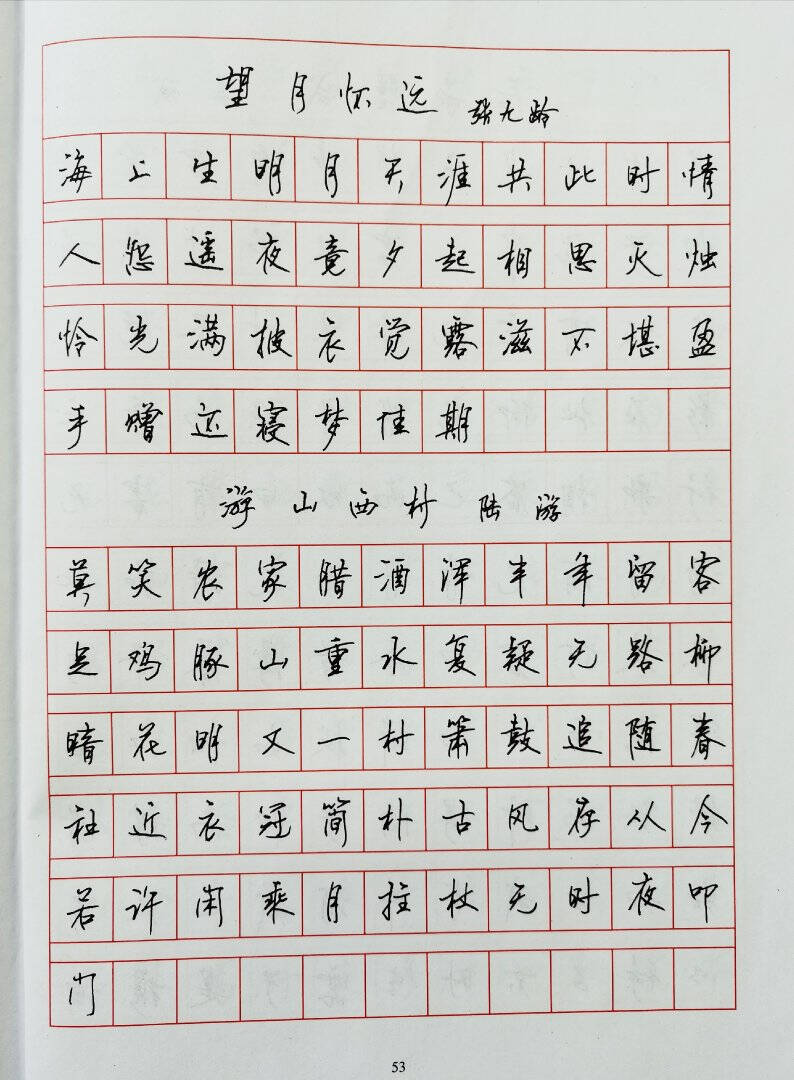 望月怀远 张九龄
海上生明月天涯共此时情
人怨遥夜竟夕起相思灭烛
怜光满披衣觉露滋不堪盈
手赠还寝梦佳期
游山西村 陆游
莫笑农家腊酒浑丰年留客
足鸡豚山重水复疑无路柳
暗花明又一村箫鼓追随春
社近衣冠简朴古风存从今
若许闲乘月拄杖无时夜叩
门
53